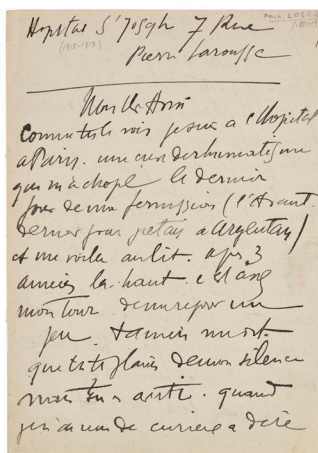 Hopital St Joseph 7 Rue
(1915-1917)
Pierre Larousse
Mon cher Ami
Comme tu le vois je suis a l'Hopital
a Paris. une crise de rhumatisme
qui m'a chopé le dernier
jour de ma permission (l'avant
dernier jour j'etais a Argentan)
et me voila au lit. apres 3
années la-haut. c'est
mon tour de me reposer un
peu. ta mere m'ecrit
que tu te plains de mon silence
mais tu a quand
j'ai un de a dire